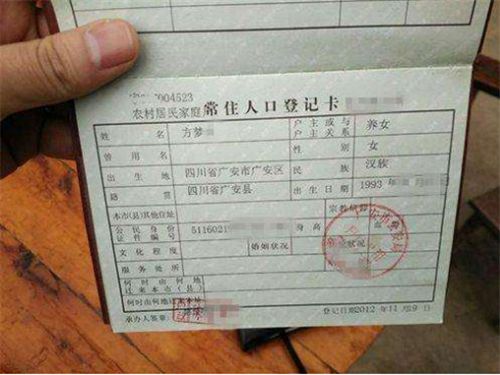 004523
农村居民家庭 常住人口登记卡
姓 名 方梦 户主或与户主关系 养女
曾用名 性 别 女
出生地 四川省广安市广安区 民 族 汉族
籍 贯 四川省广安县 出生日期 1993
本市(县)其他住址 宗教信仰
公民身份证件编号 5116021 身高
文化程度 婚姻状况 状况
服务处所
何时由何地迁来本市(县)
何时由何地迁来本址
承办人签章: 登记日期:2012年11月9日